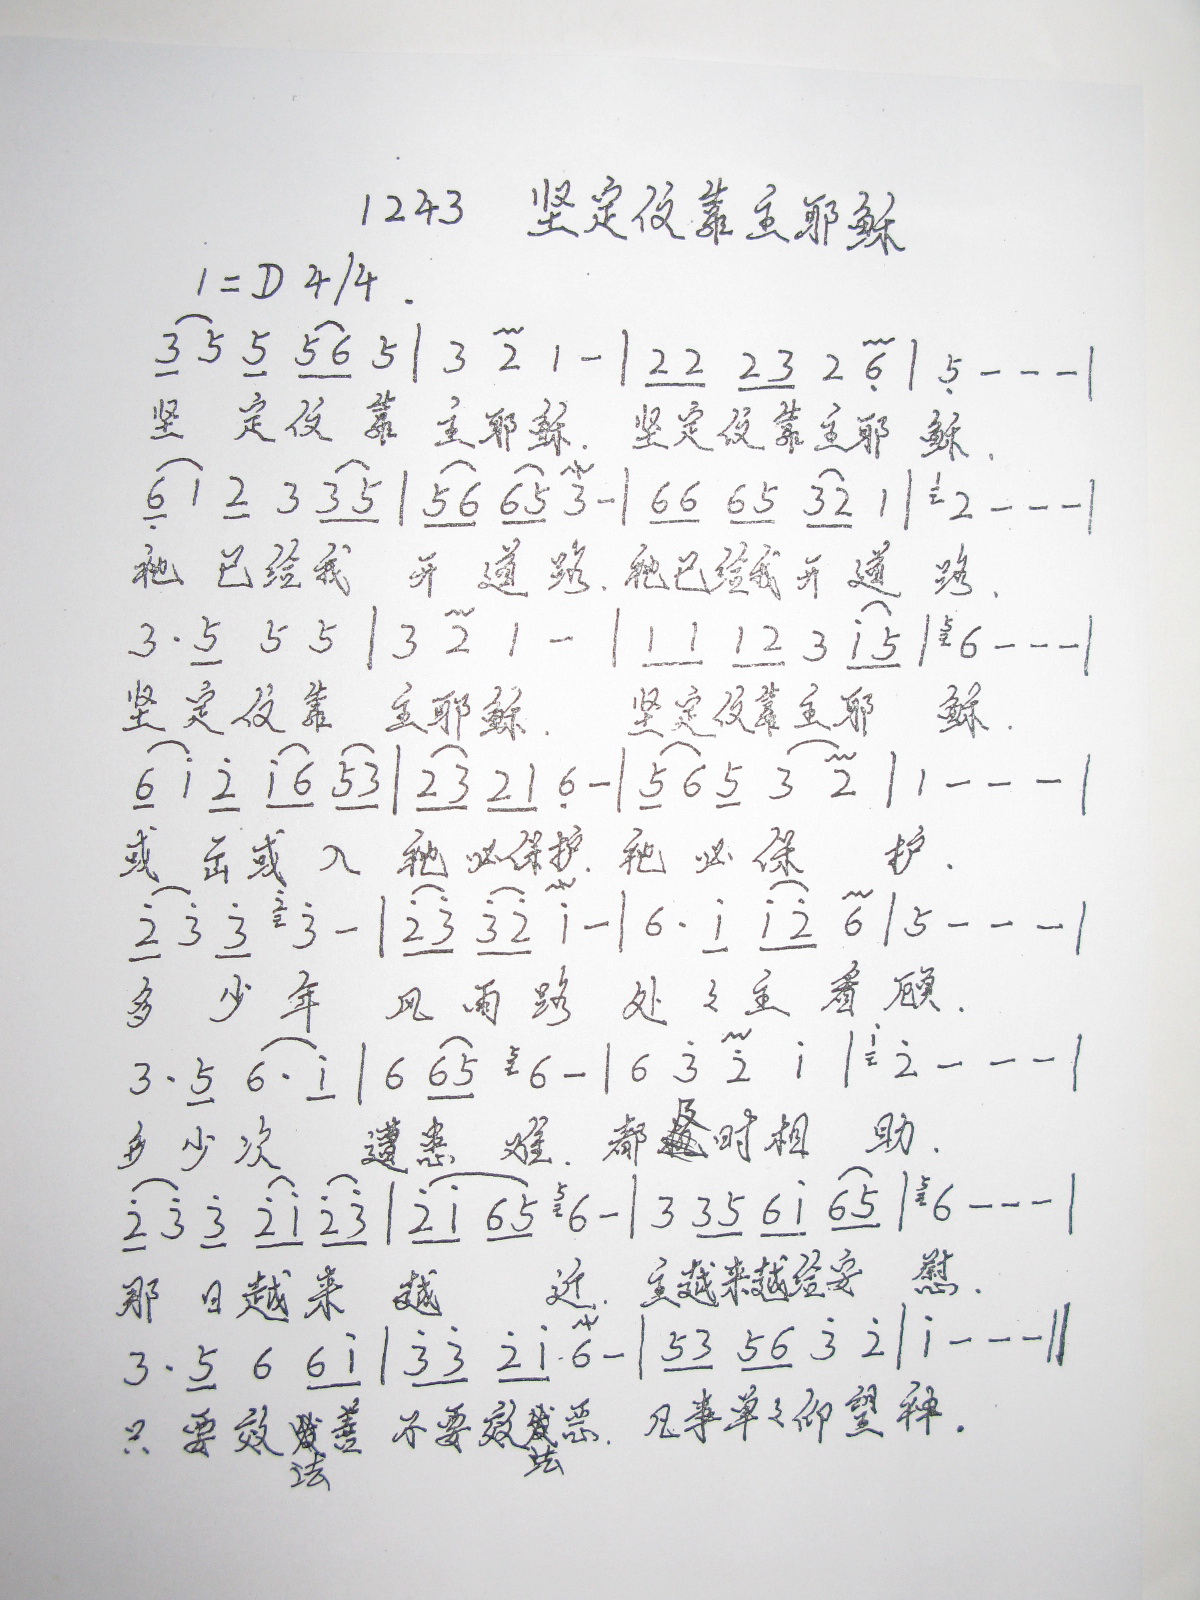 1243 坚定伩靠主耶稣
1=D 4/4.
3 5 5 56 5 | 3 2 1 - | 22 23 2 6̣ | 5̣ - - - |
坚 定伩 靠 主耶稣. 坚定伩靠主耶 稣.
6̣ 1 2 3 35 | 56 65 3 - | 66 65 32 1 | 1 2 - - - |
祂 已给我 开 道 路. 祂已给我开道 路.
3·5 5 5 | 3 2 1 - | 1 1 12 3 i5 | 5 6 - - - |
坚定伩靠 主耶稣. 坚定伩靠主耶 稣.
6 i 2̇ i6 53 | 23 21 6̣ - | 5 6 5 3 2 | 1 - - - |
或 出或 入 祂必保护. 祂 必 保 护.
2̇ 3̇ 3̇ 2̇ 3̇ - | 2̇3̇ 3̇2̇ i - | 6·i i2̇ 6 | 5 - - - |
多 少 年 风 雨 路 处々主 看 顾.
3·5 6·i | 6 65 5 6 - | 6 3̇ 2̇ i | i 2̇ - - - |
多少次 遭患 难. 都及时相 助.
2̇ 3̇ 3̇ 2̇i 2̇3̇ | 2̇i 65 5 6 - | 3 35 6i 65 | 5 6 - - - |
那 日越来 越 近. 主越来越给安 慰.
3·5 6 6i | 3̇3̇ 2̇i 6 - | 53 56 3̇ 2̇ | i - - - ‖
只 要效善 不要效恶. 凡事单々仰望神.
法 法